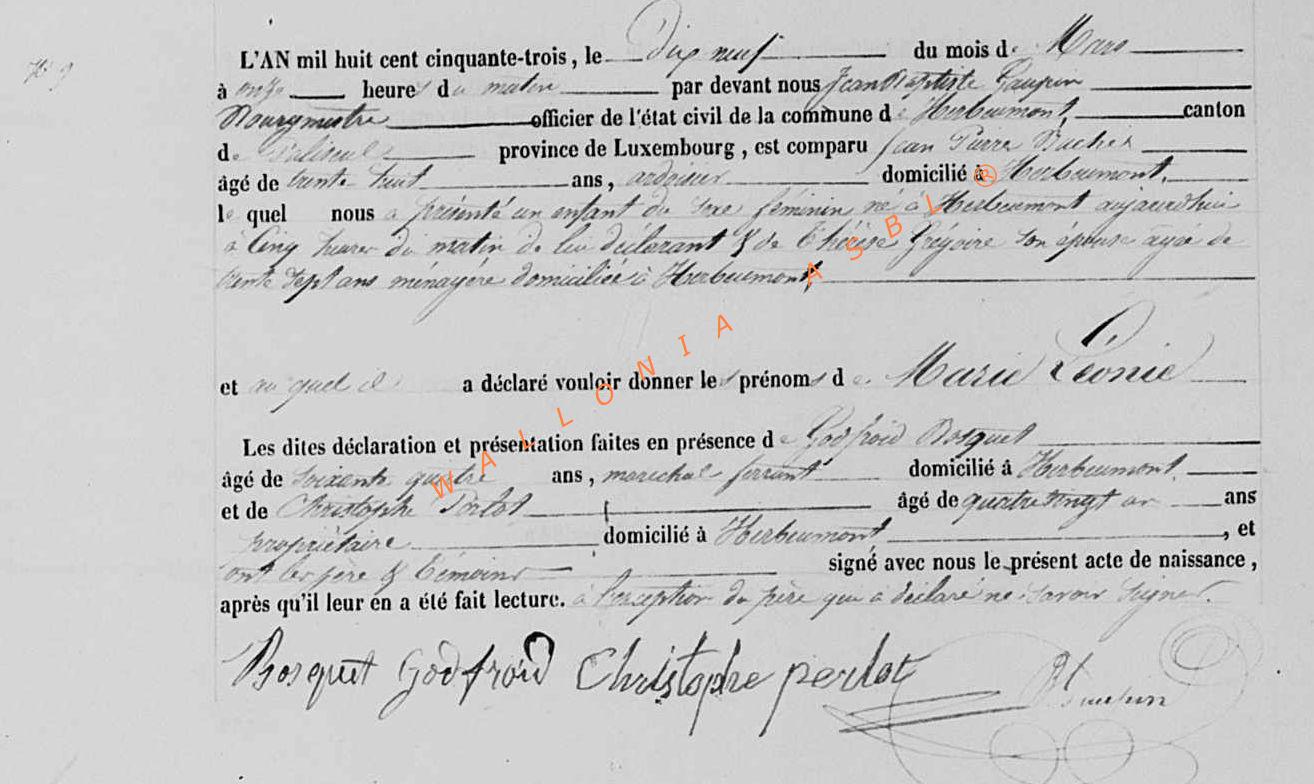 N° 9
L'AN mil huit cent cinquante-trois, le Dix neuf du mois de Mars
à onze heures du matin par devant nous Jean Baptiste
Bourgmestre officier de l'état civil de la commune d'Herbeumont, canton
de Paliseul province de Luxembourg, est comparu Jean Pierre
âgé de trente huit ans, ardoisier domicilié à Herbeumont,
le quel nous a présenté un enfant du sexe féminin né à Herbeumont aujourd'hui
à Cinq heures du matin de lui déclarant & de Thérèse Grégoire son épouse agée de
trente sept ans ménagère domiciliée à Herbeumont,
et au quel il a déclaré vouloir donner les prénoms de Marie Léonie
Les dites déclaration et présentation faites en présence de Godfroid Bosquet
âgé de soixante quatre ans, marechal ferrant domicilié à Herbeumont,
et de Christophe Perlot âgé de quatre vingt un ans
propriétaire domicilié à Herbeumont, et
ont les père & témoins signé avec nous le présent acte de naissance,
après qu'il leur en a été fait lecture. à l'exception du père qui a déclaré ne savoir signer.
Bosquet Godfroid Christophe perlot
WALLONIA ASBL ®